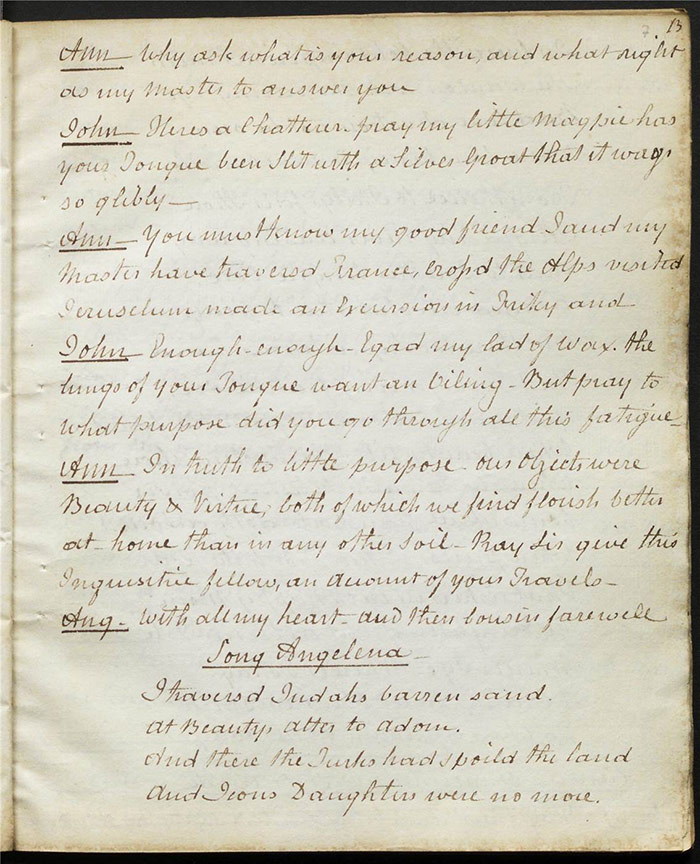 7. 13
Ann - Why ask what is your reason, and what right
as my Master to answer you
John - Heres a Chatterer - pray my little Magpie has
your Tongue been Slit with a Silver Groat that it wags
so glibly -
Ann - You must know my good friend I and my
Master have traversd France, Cross'd the Alps visited
Jeruselum made an Excursion in Friky and
John Enough - enough - Egad my lad of Wax. the
lungs of your Tongue want an Oiling - But pray to
what purpose did you go through all this fatigue -
Ann - In truth to little purpose - our Objects were
Beauty & Virtue, both of which we find florish better
at - home than in any other Soil - Pray Sir give this
Inquisitive fellow, an account of your Travels -
Ang - With all my heart - and then Cousin farewell
Song Angelena -
I traversd Judahs barren sand.
At Beautys alter to adorn.
And there the Turks had spoild the land
And Zions Daughters were no more.